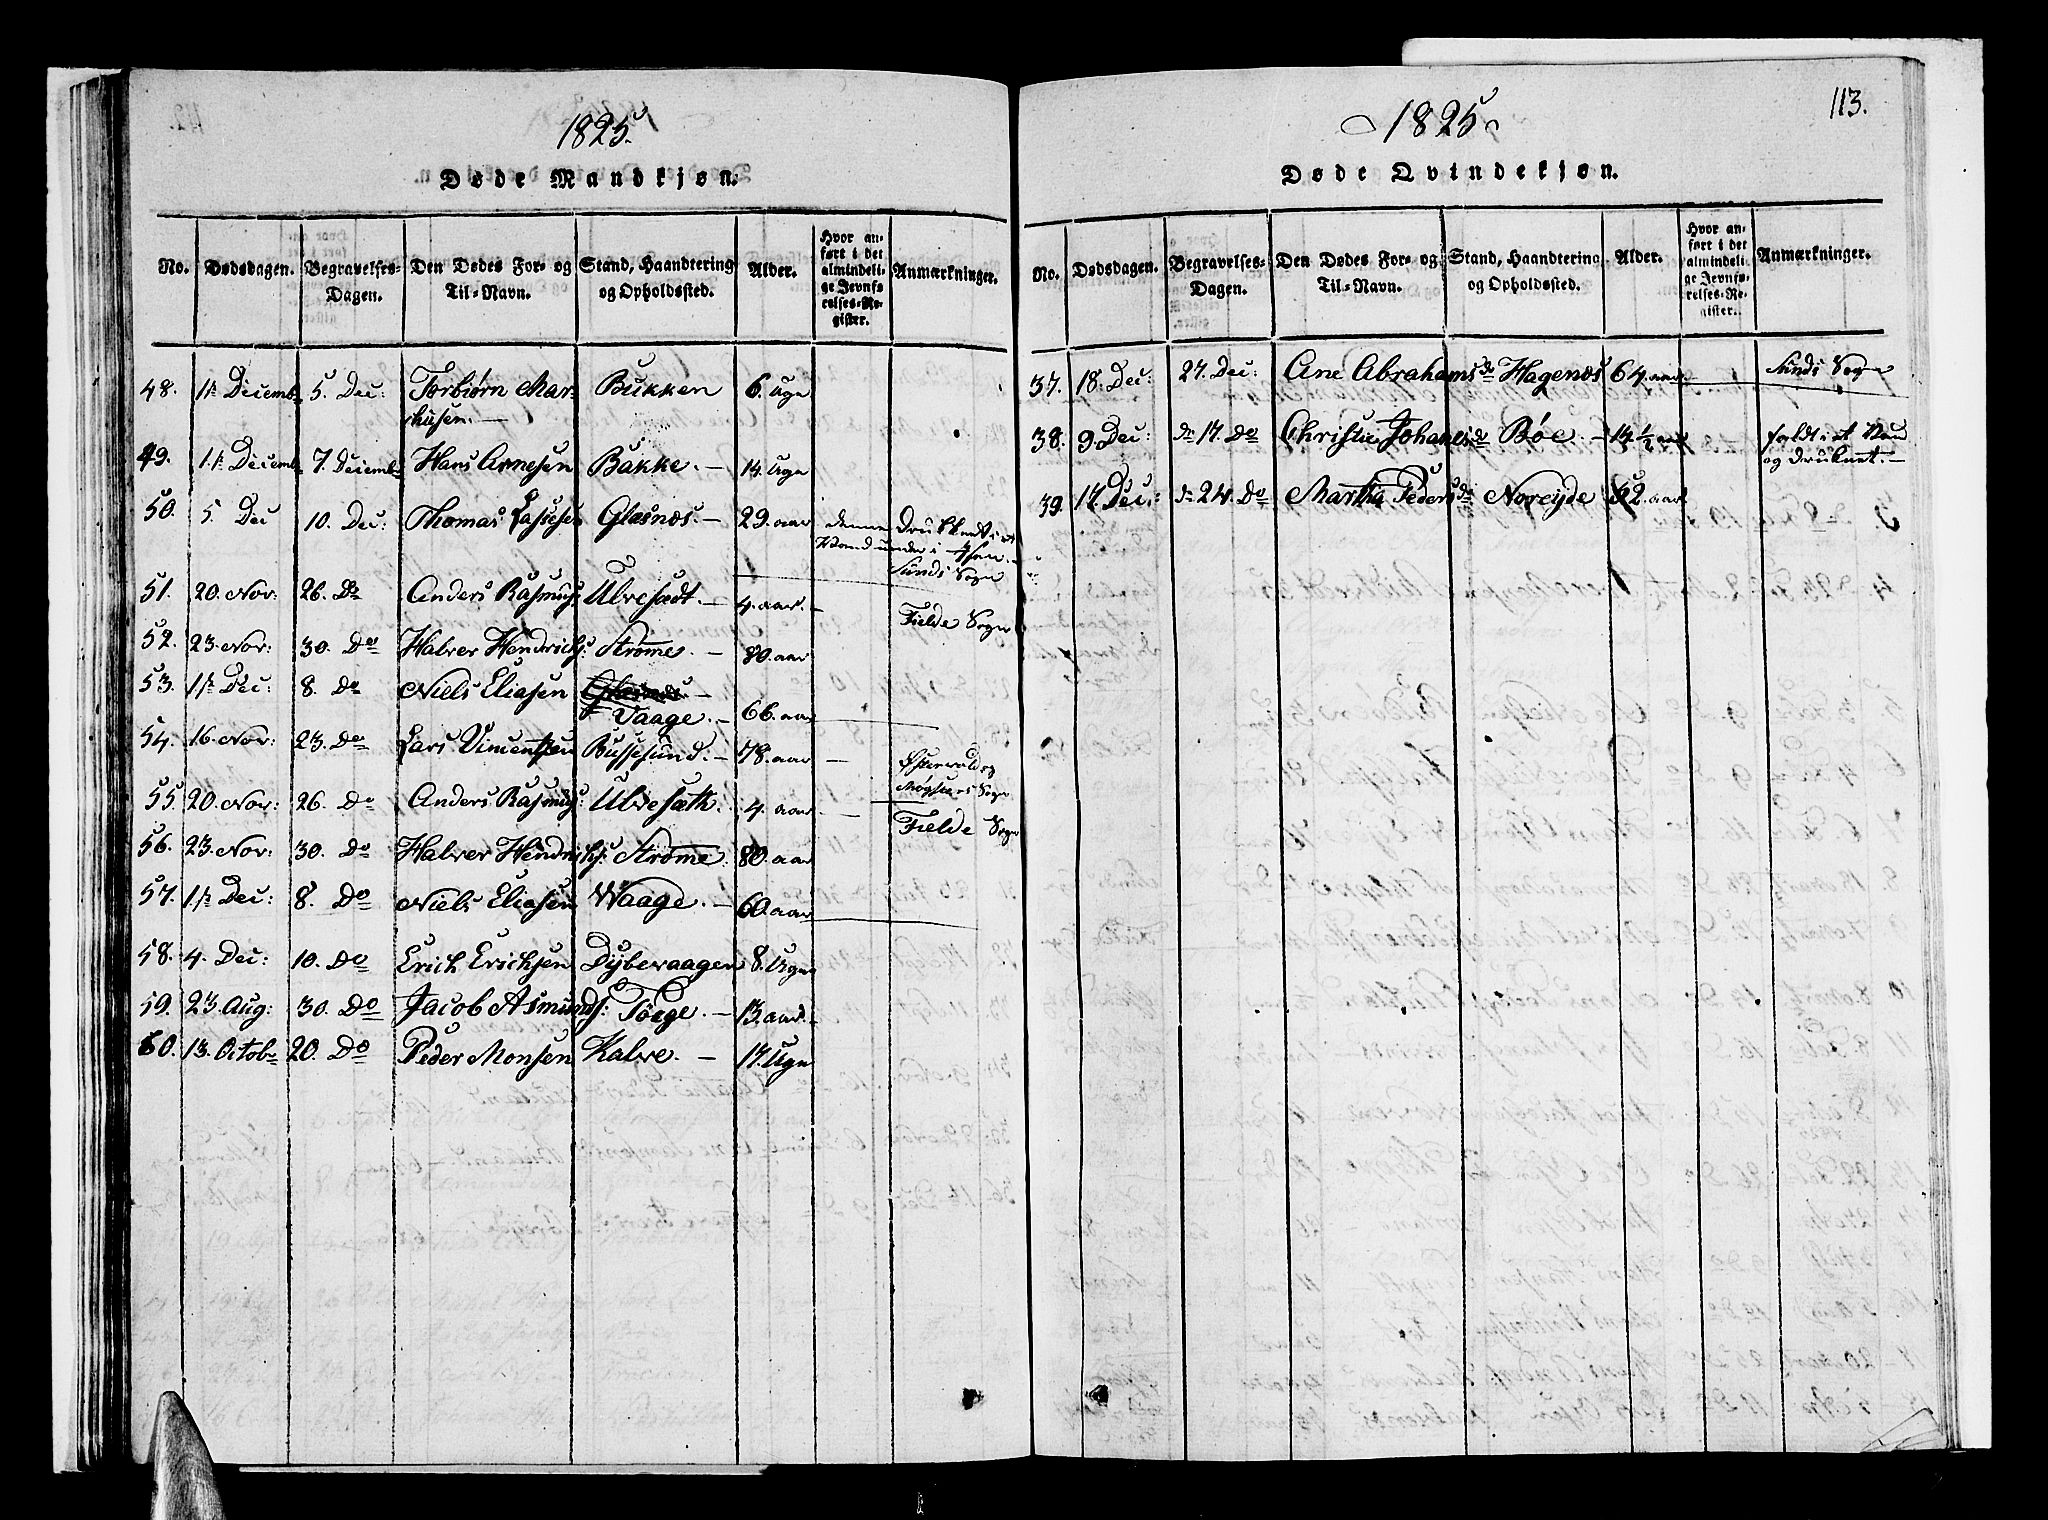 1825.
Døde Mandkjøn.
No. Dødsdagen. Begravelses-Dagen. Den Dødes For- og Til-Navn. Stand, Haandtering og Opholdssted. Alder. Hvor anført i det almindelige Jevnførelses-Register. Anmærkninger.
48. 1te Decembr 5. Dec: Torbiørn Markusen. — Bukken 6. Uge
49. 1te Decembr 7. Decembr Hans Arnesen Bakke. — 14. Uge
50. 5. Dec 10. Dec: Thomas Lassesen Glesnæs. — 29. aar
Sunds Sogn
51. 20. Nov: 26. Do Anders Rasmus: Ulvesædt. — 4. aar. —
Fielde Sogn
52. 23. Nov: 30. Do Halver Hendrichs: Strømme. — 80. aar
53. 1te Dec: 8. Do Niels Eliasen Vaage. — 66. aar
54. 16. Nov: 23. Do Lars Vincentsen Bussesund. — 78. aar —
Østervold og
Møgsters Sogn
55. 20. Nov: 26. Do Anders Rasmus: Ulvesæth. 4. aar. —
Fielde Sogn
56. 23. Nov: 30. Do Halver Hendrichs: Strømme. 80. aar
57. 1te Dec: 8. Do Niels Eliasen Waage. — 60. aar
58. 4. Dec: 10. Do Erich Erichsen Dybevaagen 8. Uge
59. 23. Aug: 30. Do Jacob Asmunds: Toege. — 13. aar. —
60. 13. Octob: 20. Do Peder Monsen Kalve. — 17. Uge
113.
1825
Døde Qvindekjøn.
No. Dødsdagen. Begravelses-Dagen. Den Dødes For- og Til-Navn. Stand, Haandtering og Opholdssted. Alder. Hvor anført i det almindelige Jevnførelses-Register. Anmærkninger.
37. 18. Dec: 27. Dec: Ane Abrahamsdr Hagenæs 64. aar. Sunds Sogn
38. 9. Dec: 17. Do Christie Johanesdr Bøe. — 14 1/2 aar faldt i et Vand
og druknet. —
39. 17. Dec: 24. Do Martha Pedersdr Noreyde 62. aar